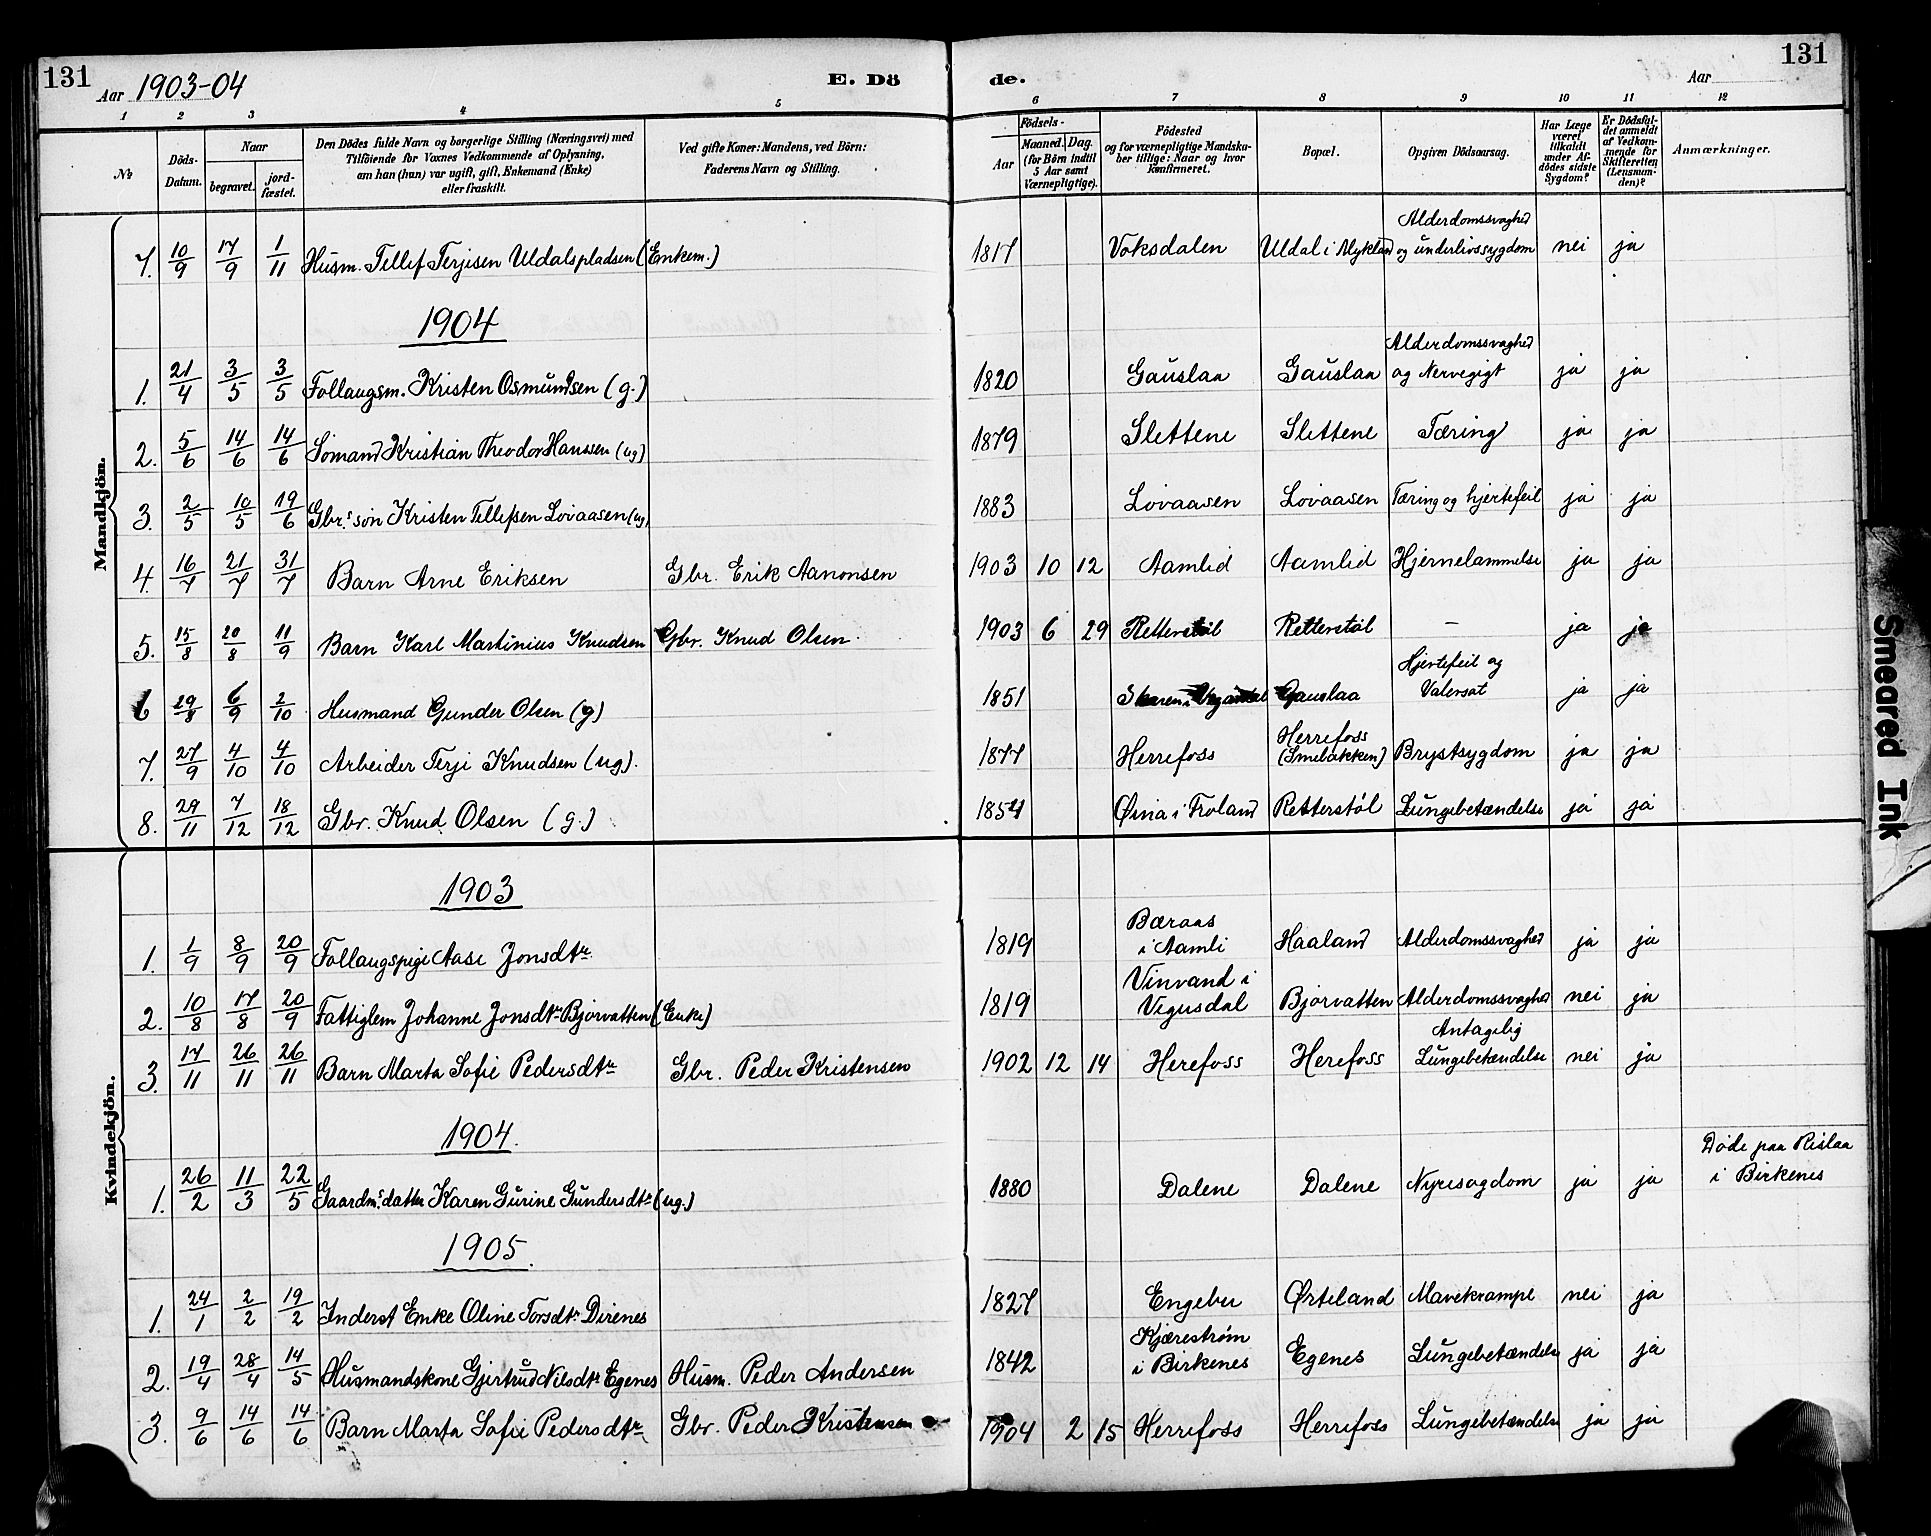 131 Aar 1903-04 E. Dö de. Aar 131
1 2 3 4 5 6 7 8 9 10 11 12
No
Döds-Datum.
Naar
begravet. jord-fæstet.
Den Dödes fulde Navn og borgerlige Stilling (Næringsvei) med
Tilföiende for Voxnes Vedkommende af Oplysning,
om han (hun) var ugift, gift, Enkemand (Enke)
eller fraskilt.
Ved gifte Koner: Mandens, ved Börn:
Faderens Navn og Stilling.
Födsels-
Aar Maaned. Dag.
(for Börn indtil
5 Aar samt
Værnepligtige).
Födested
og for værnepligtige Mandska-
ber tillige: Naar og hvor
konfirmeret.
Bopæl.
Opgiven Dödsaarsag.
Har Læge
været
tilkaldt
under Af-
dödes sidste
Sygdom?
Er Dödsfal-
det anmeldt
af Vedkom-
mende for
Skifteretten
(Lensman-
den)?
Anmærkninger.
Mandkjön.
7. 10/9 17/9 1/11 Husm. Tellef Terjesen Uldalspladsen (Enkem.) 1817 Voksdalen Uldal i Mykland Alderdomssvaghed og underlivssygdom nei ja
1904
1. 21/4 3/5 3/5 Follaugsm. Kristen Osmundsen (g.) 1820 Gauslaa Gauslaa Alderdomssvaghed og Nervegigt ja ja
2. 5/6 14/6 14/6 Sömand Kristian Theodor Hanssen (ug) 1879 Slettene Slettene Tæring ja ja
3. 2/5 10/5 19/6 Gbr.s sön Kristen Tellefsen Lovaasen (ug) 1883 Lovaasen Lovaasen Tæring og hjertefeil ja ja
4. 16/7 21/7 31/7 Barn Arne Eriksen Gbr. Erik Aanonsen 1903 10 12 Aamlid Aamlid Hjernelammelse ja ja
5. 15/8 20/8 11/9 Barn Karl Martinius Knudsen Gbr. Knud Olsen. 1903 6 29 Retterstöl Retterstöl – ja ja
6 29/8 6/9 2/10 Husmand Gunder Olsen (g) 1851 Gauslaa Hjertefeil og ja ja
7. 27/9 4/10 4/10 Arbeider Terje Knudsen (ug). 1877 Herrefoss Herrefoss (Smebakken) Brystsygdom ja ja
8. 29/11 7/12 18/12 Gbr. Knud Olsen (g.) 1854 Øina i Froland Retterstöl Lungebetændelse ja ja
Kvindekjön.
1903
1. 1/9 8/9 20/9 Follaugspige Aase Jonsdtr 1819 Bæraas i Aamli Haaland Alderdomssvaghed ja ja
2. 10/8 17/8 20/9 Fattiglem Johanne Jonsdtr Bjorvatten (Enke) 1819 Vinvand i Vegusdal Bjorvatten Alderdomssvaghed nei ja
3. 17/11 26/11 26/11 Barn Marta Sofie Pedersdtr Gbr. Peder Kristensen 1902 12 14 Herefoss Herefoss Antagelig Lungebetændelse nei ja
1904.
1. 26/2 11/3 22/5 Gaardm.s datter Karen Gurine Gundersdtr (ug.) 1880 Dalene Dalene Nyresygdom ja ja Döde paa Rislaa i Birkenes
1905.
1. 24/1 2/2 19/2 Inderst Enke Oline Torsdtr Direnes 1827 Engebu Ørteland Mavekrampe nei ja
2. 19/4 28/4 14/5 Husmandskone Gjertrud Nilsdtr Egenes Husm. Peder Andersen 1842 Kjærestrøm i Birkenes Egenes Lungebetændelse ja ja
3. 9/6 14/6 14/6 Barn Marta Sofie Pedersdtr Gbr. Peder Kristensen 1904 2 15 Herrefoss Herrefoss Lungebetændelse ja ja
Smeared Ink